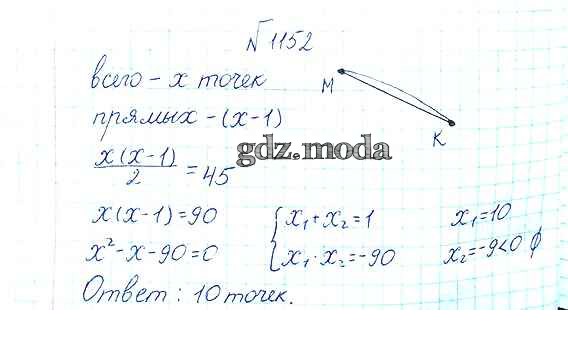 №1152
всего - x точек
M
прямых - (x-1)
K
x(x-1)/2 = 45
gdz.moda
x(x-1)=90 { x₁+x₂=1 x₁=10
x²-x-90=0 x₁·x₂=-90 x₂=-9<0 ∅
Ответ: 10 точек.